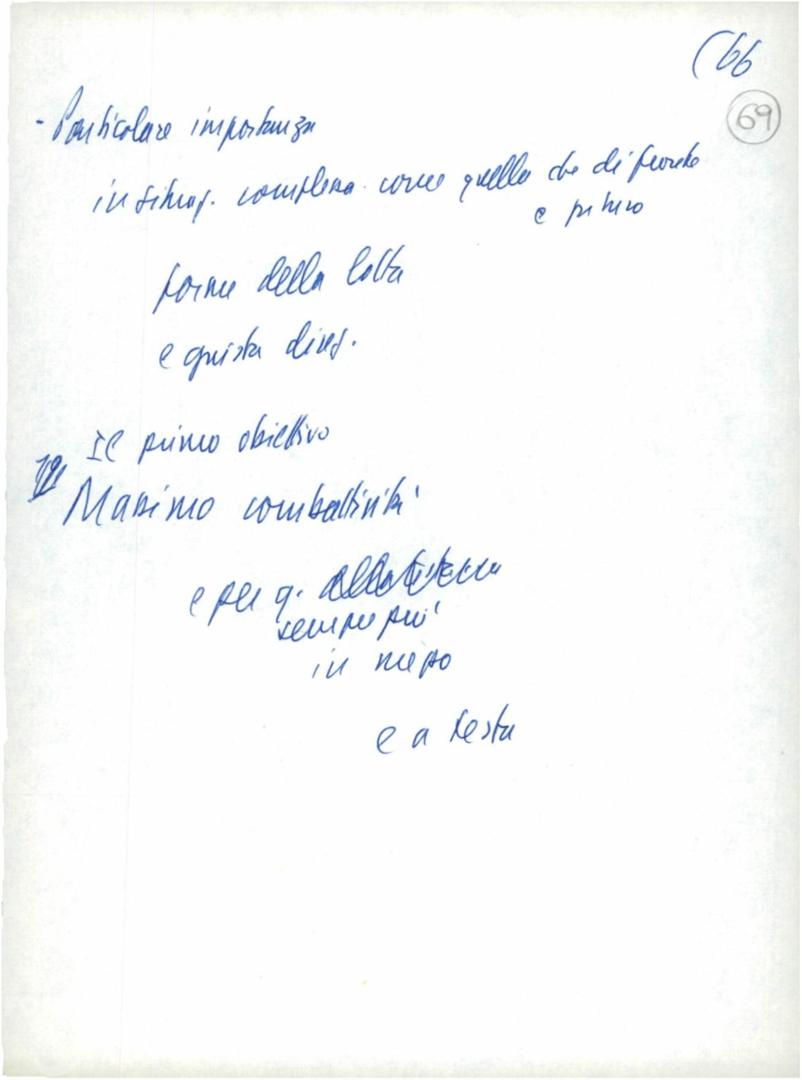 (66
69
- Particolare importanza
in situaz. complessa come quella che di fronte
e
forme della lotta
e questa
Il primo obiettivo
Massimo combattività
e per q.
sempre più
in mezzo
e a testa